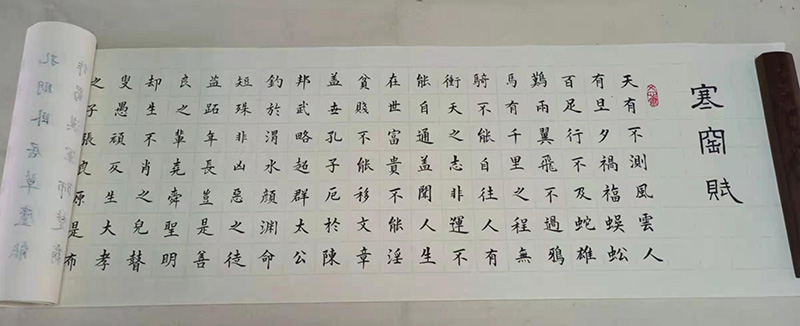 寒窑賦
天有不測風雲人
有旦夕禍福蜈蚣
百足行不及蛇雄
鷄兩翼飛不過鴉
馬有千里之程無
騎不能自往人有
衝天之志非運不
能自通盖聞人生
在世富貴不能淫
貧賤不能移文章
盖世孔子厄於陳
邦武略超群太公
釣於渭水顏淵命
短殊非凶惡之徒
盜跖年長豈是善
良之輩堯舜聖明
却生不肖之兒瞽
叟愚頑反生大孝
之子張良原是布
孔明卧居草廬能
作蜀漢軍師楚霸